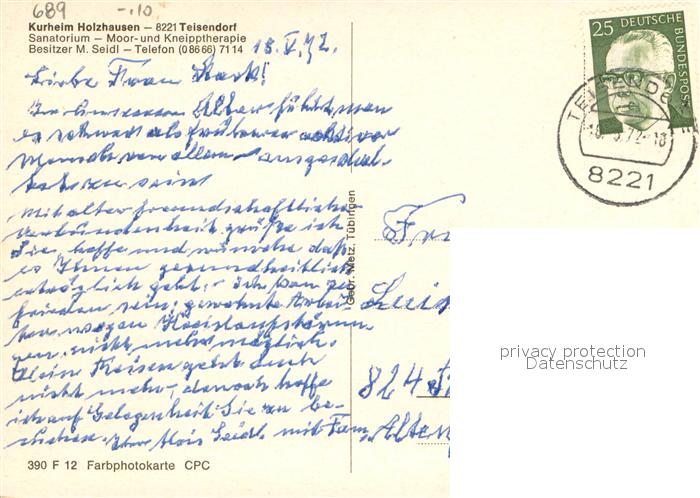 689 -.10
Kurheim Holzhausen — 8221 Teisendorf
Sanatorium — Moor- und Kneipptherapie
Besitzer M. Seidl — Telefon (0 86 66) 71 14
18. V. 72.
Liebe Frau
In unserem Alter fühlt man
es schwer als früher
vor allem
sein
Mit alter freundschaftlicher
Verbundenheit grüße ich
Sie, hoffe und wünsche daß
es Ihnen gesundheitlich
erträglich geht. - Ich bin zu-
frieden, gewohnte Arbei-
ten wegen Kreislaufstörun-
gen nicht mehr möglich.
Mein Reisen geht auch
nicht mehr, dennoch hoffe
ich auf Gelegenheit Sie zu be-
suchen. Ihr Alois Seidl mit Fam.
390 F 12 Farbphotokarte CPC
Gebr. Metz, Tübingen
25 DEUTSCHE BUNDESPOST
TEISENDO
18.-5.72-18
8221
824
privacy protection
Datenschutz